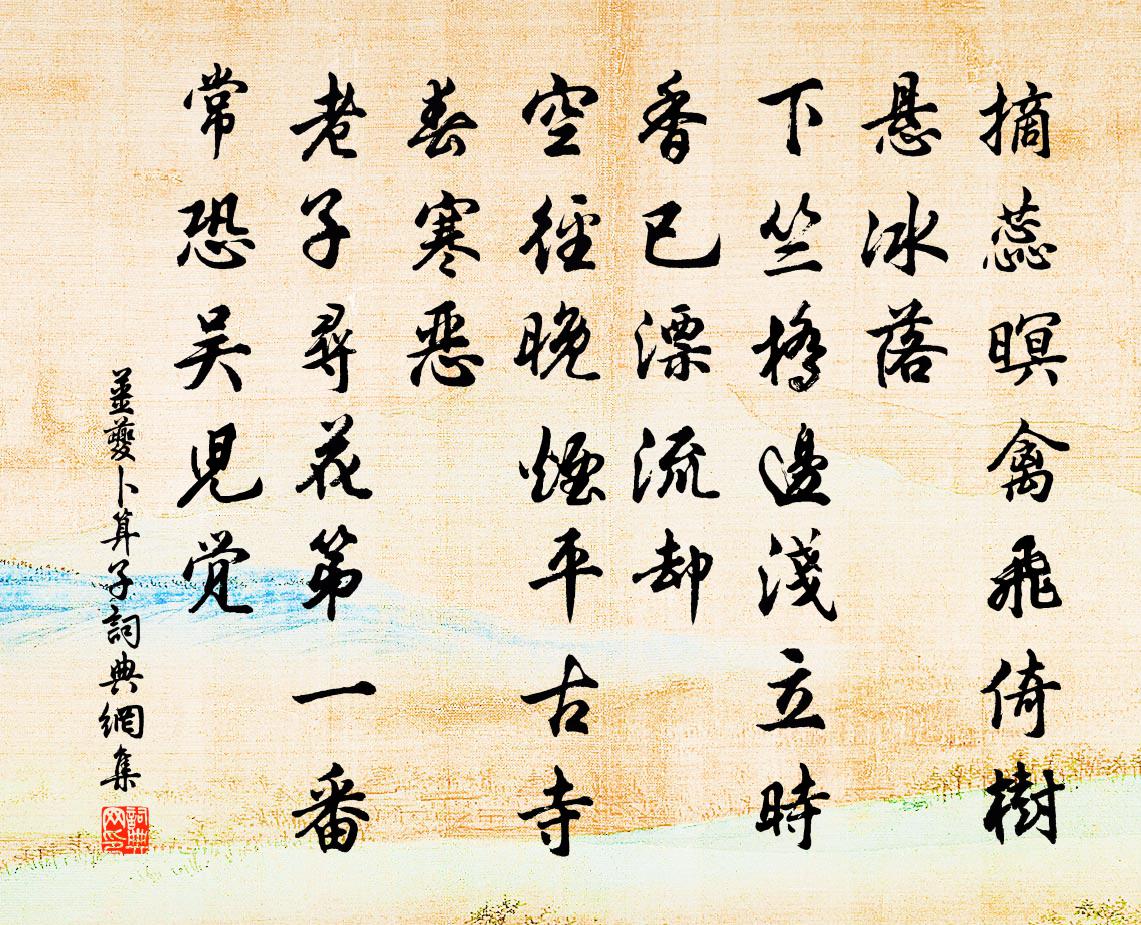 摘蕊暝禽飛倚樹
悬冰落
下竺橋邊淺立時
香已漂流却
空徑晚煙平古寺
春寒惡
老子尋花第一番
常恐吴兒覺
薑夔卜算子詞典網集
詞典网印